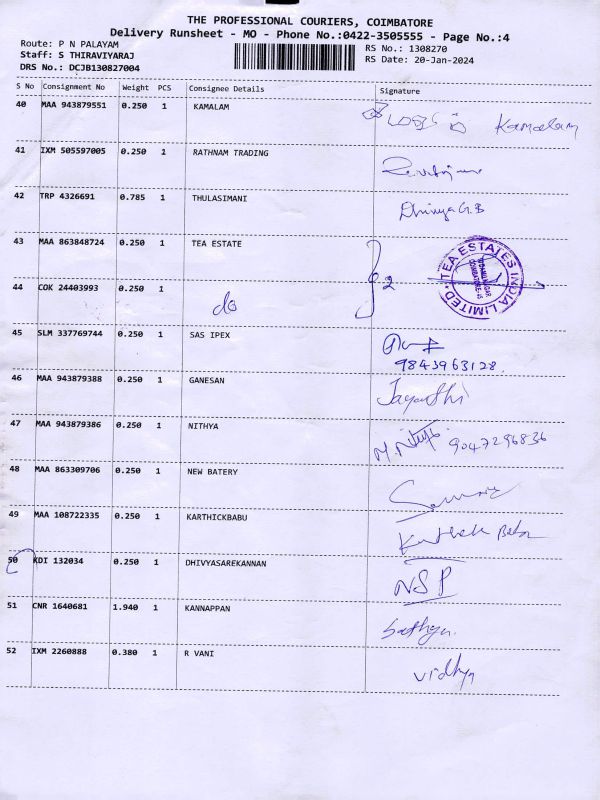 THE PROFESSIONAL COURIERS, COIMBATORE
Delivery Runsheet - MO - Phone No.:0422-3505555 - Page No.:4
Route: P N PALAYAM
Staff: S THIRAVIYARAJ
DRS No.: DCJB130827004
RS No.: 1308270
RS Date: 20-Jan-2024
S No Consignment No Weight PCS Consignee Details Signature
40 MAA 943879551 0.250 1 KAMALAM Kamalam
41 IXM 505597005 0.250 1 RATHNAM TRADING
42 TRP 4326691 0.785 1 THULASIMANI Dhivya G.B
43 MAA 863848724 0.250 1 TEA ESTATE
TEA ESTATES INDIA LIMITED
44 COK 24403993 0.250 1 do 2
45 SLM 337769744 0.250 1 SAS IPEX
9843963128
46 MAA 943879388 0.250 1 GANESAN Jayanthi
47 MAA 943879386 0.250 1 NITHYA M. Nithya 9047296836
48 MAA 863309706 0.250 1 NEW BATERY
49 MAA 108722335 0.250 1 KARTHICKBABU
50 KDI 132034 0.250 1 DHIVYASAREKANNAN NSP
51 CNR 1640681 1.940 1 KANNAPPAN Sathya.
52 IXM 2260888 0.380 1 R VANI vidhya